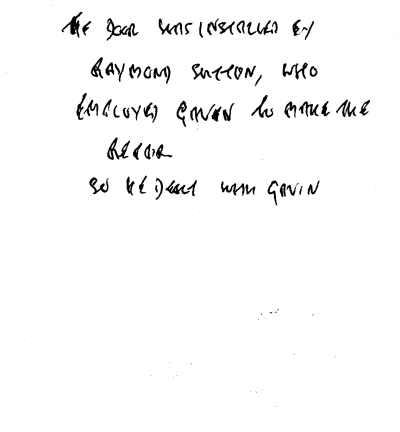 THE DOOR WAS INSTALLED BY
RAYMOND SUTTON, WHO
EMPLOYED GAVIN TO MAKE THE
REPAIR
SO HE DEALT WITH GAVIN